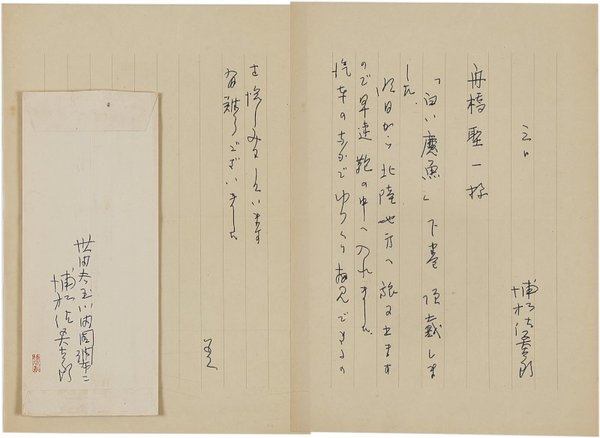 三日 浦松佐美太郎
舟橋聖一様
「白い魔魚」下巻 頂戴しま
した。
明日から北陸地方へ旅に出ます
ので早速鞄の中へ入れました。
汽車の中でゆっくり拝見できるの
を愉しみにしています
有難うございました
世田谷玉川
浦松佐美太郎